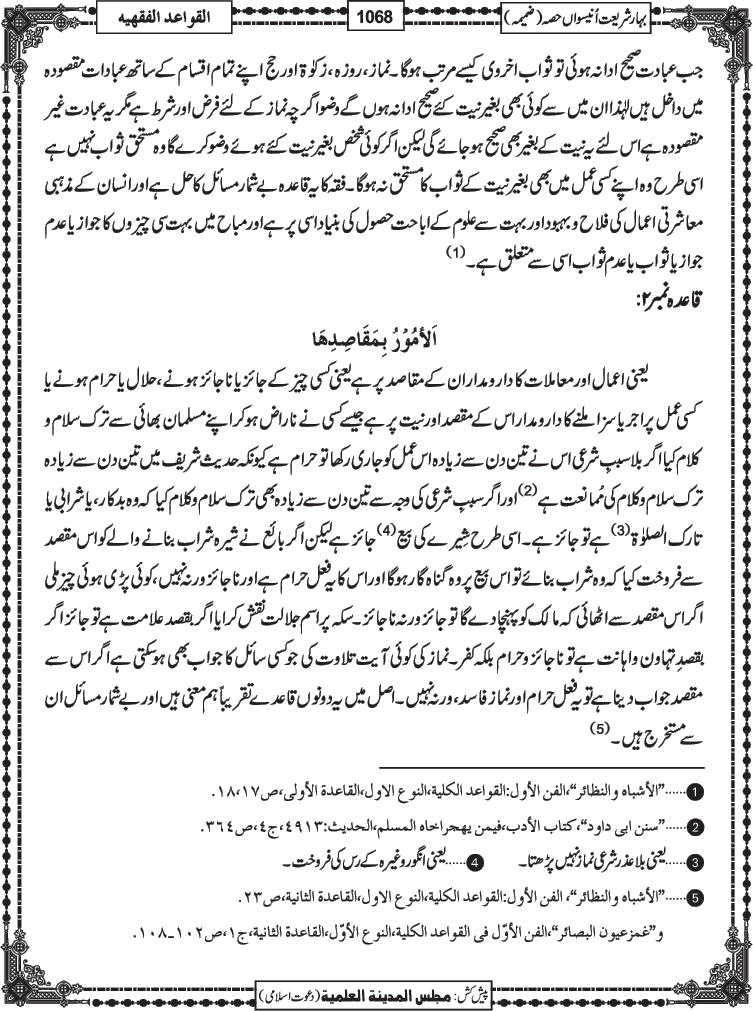 بہار شریعت اُنیسواں حصہ (ضمیمہ)
1068
القواعد الفقھیه
جب عبادت صحیح ادا نہ ہوئی تو ثواب اخروی کیسے مرتب ہوگا۔ نماز، روزہ، زکوٰۃ اور حج اپنے تمام اقسام کے ساتھ عبادات مقصودہ
میں داخل ہیں لہٰذا ان میں سے کوئی بھی بغیر نیت کئے صحیح ادا نہ ہوں گے وضو اگرچہ نماز کے لئے فرض اور شرط ہے مگر یہ عبادت غیر
مقصودہ ہے اس لئے یہ نیت کے بغیر بھی صحیح ہو جائے گی لیکن اگر کوئی شخص بغیر نیت کئے ہوئے وضو کرے گا وہ مستحق ثواب نہیں ہے
اسی طرح وہ اپنے کسی عمل میں بھی بغیر نیت کے ثواب کا مستحق نہ ہوگا۔ فقہ کا یہ قاعدہ بے شمار مسائل کا حل ہے اور انسان کے مذہبی
معاشرتی اعمال کی فلاح و بہبود اور بہت سے علوم کے اباحت حصول کی بنیاد اسی پر ہے اور مباح میں بہت سی چیزوں کا جواز یا عدم
جواز یا ثواب یا عدم ثواب اسی سے متعلق ہے۔ (1)
قاعدہ نمبر ۲:
اَلأُمُوْرُ بِمَقَاصِدِهَا
یعنی اعمال اور معاملات کا دارومدار ان کے مقاصد پر ہے یعنی کسی چیز کے جائز یا ناجائز ہونے، حلال یا حرام ہونے یا
کسی عمل پر اجر یا سزا ملنے کا دارومدار اس کے مقصد اور نیت پر ہے جیسے کسی نے ناراض ہو کر اپنے مسلمان بھائی سے ترک سلام و
کلام کیا اگر بلا سببِ شرعی اس نے تین دن سے زیادہ اس عمل کو جاری رکھا تو حرام ہے کیونکہ حدیث شریف میں تین دن سے زیادہ
ترک سلام و کلام کی مُمانعت ہے (2) اور اگر سببِ شرعی کی وجہ سے تین دن سے زیادہ بھی ترک سلام و کلام کیا کہ وہ بدکار، یا شرابی یا
تارک الصلوٰۃ (3) ہے تو جائز ہے۔ اسی طرح شِیرے کی بیع (4) جائز ہے لیکن اگر بائع نے شیرہ شراب بنانے والے کو اس مقصد
سے فروخت کیا کہ وہ شراب بنائے تو اس بیع پر وہ گناہ گار ہوگا اور اس کا یہ فعل حرام ہے اور ناجائز ورنہ نہیں، کوئی پڑی ہوئی چیز ملی
اگر اس مقصد سے اٹھائی کہ مالک کو پہنچا دے گا تو جائز ورنہ ناجائز۔ سکہ پر اسم جلالت نقش کرایا اگر بقصد علامت ہے تو جائز اگر
بقصدِ تہاون و اہانت ہے تو ناجائز و حرام بلکہ کفر۔ نماز کی کوئی آیت تلاوت کی جو کسی سائل کا جواب بھی ہو سکتی ہے اگر اس سے
مقصد جواب دینا ہے تو یہ فعل حرام اور نماز فاسد، ورنہ نہیں۔ اصل میں یہ دونوں قاعدے تقریباً ہم معنی ہیں اور بے شمار مسائل ان
سے مستخرج ہیں۔ (5)
1 ......”الأشباه والنظائر“، الفن الأول: القواعد الكلية، النوع الاول، القاعدة الأولى، ص۱۷،۱۸.
2 ......”سنن ابی داود“، كتاب الأدب، فيمن يهجر اخاه المسلم، الحديث: ۴۹۱۳، ج۴، ص۳۶۴.
3 ......یعنی بلا عذر شرعی نماز نہیں پڑھتا۔ 4 ......یعنی انگور وغیرہ کے رس کی فروخت۔
5 ......”الأشباه والنظائر“، الفن الأول: القواعد الكلية، النوع الاول، القاعدة الثانية، ص۲۳.
و”غمز عيون البصائر“، الفن الأوّل فی القواعد الكلية، النوع الأوّل، القاعدة الثانية، ج۱، ص۱۰۲-۱۰۸.
پیش کش: مجلس المدينة العلمية (دعوت اسلامی)